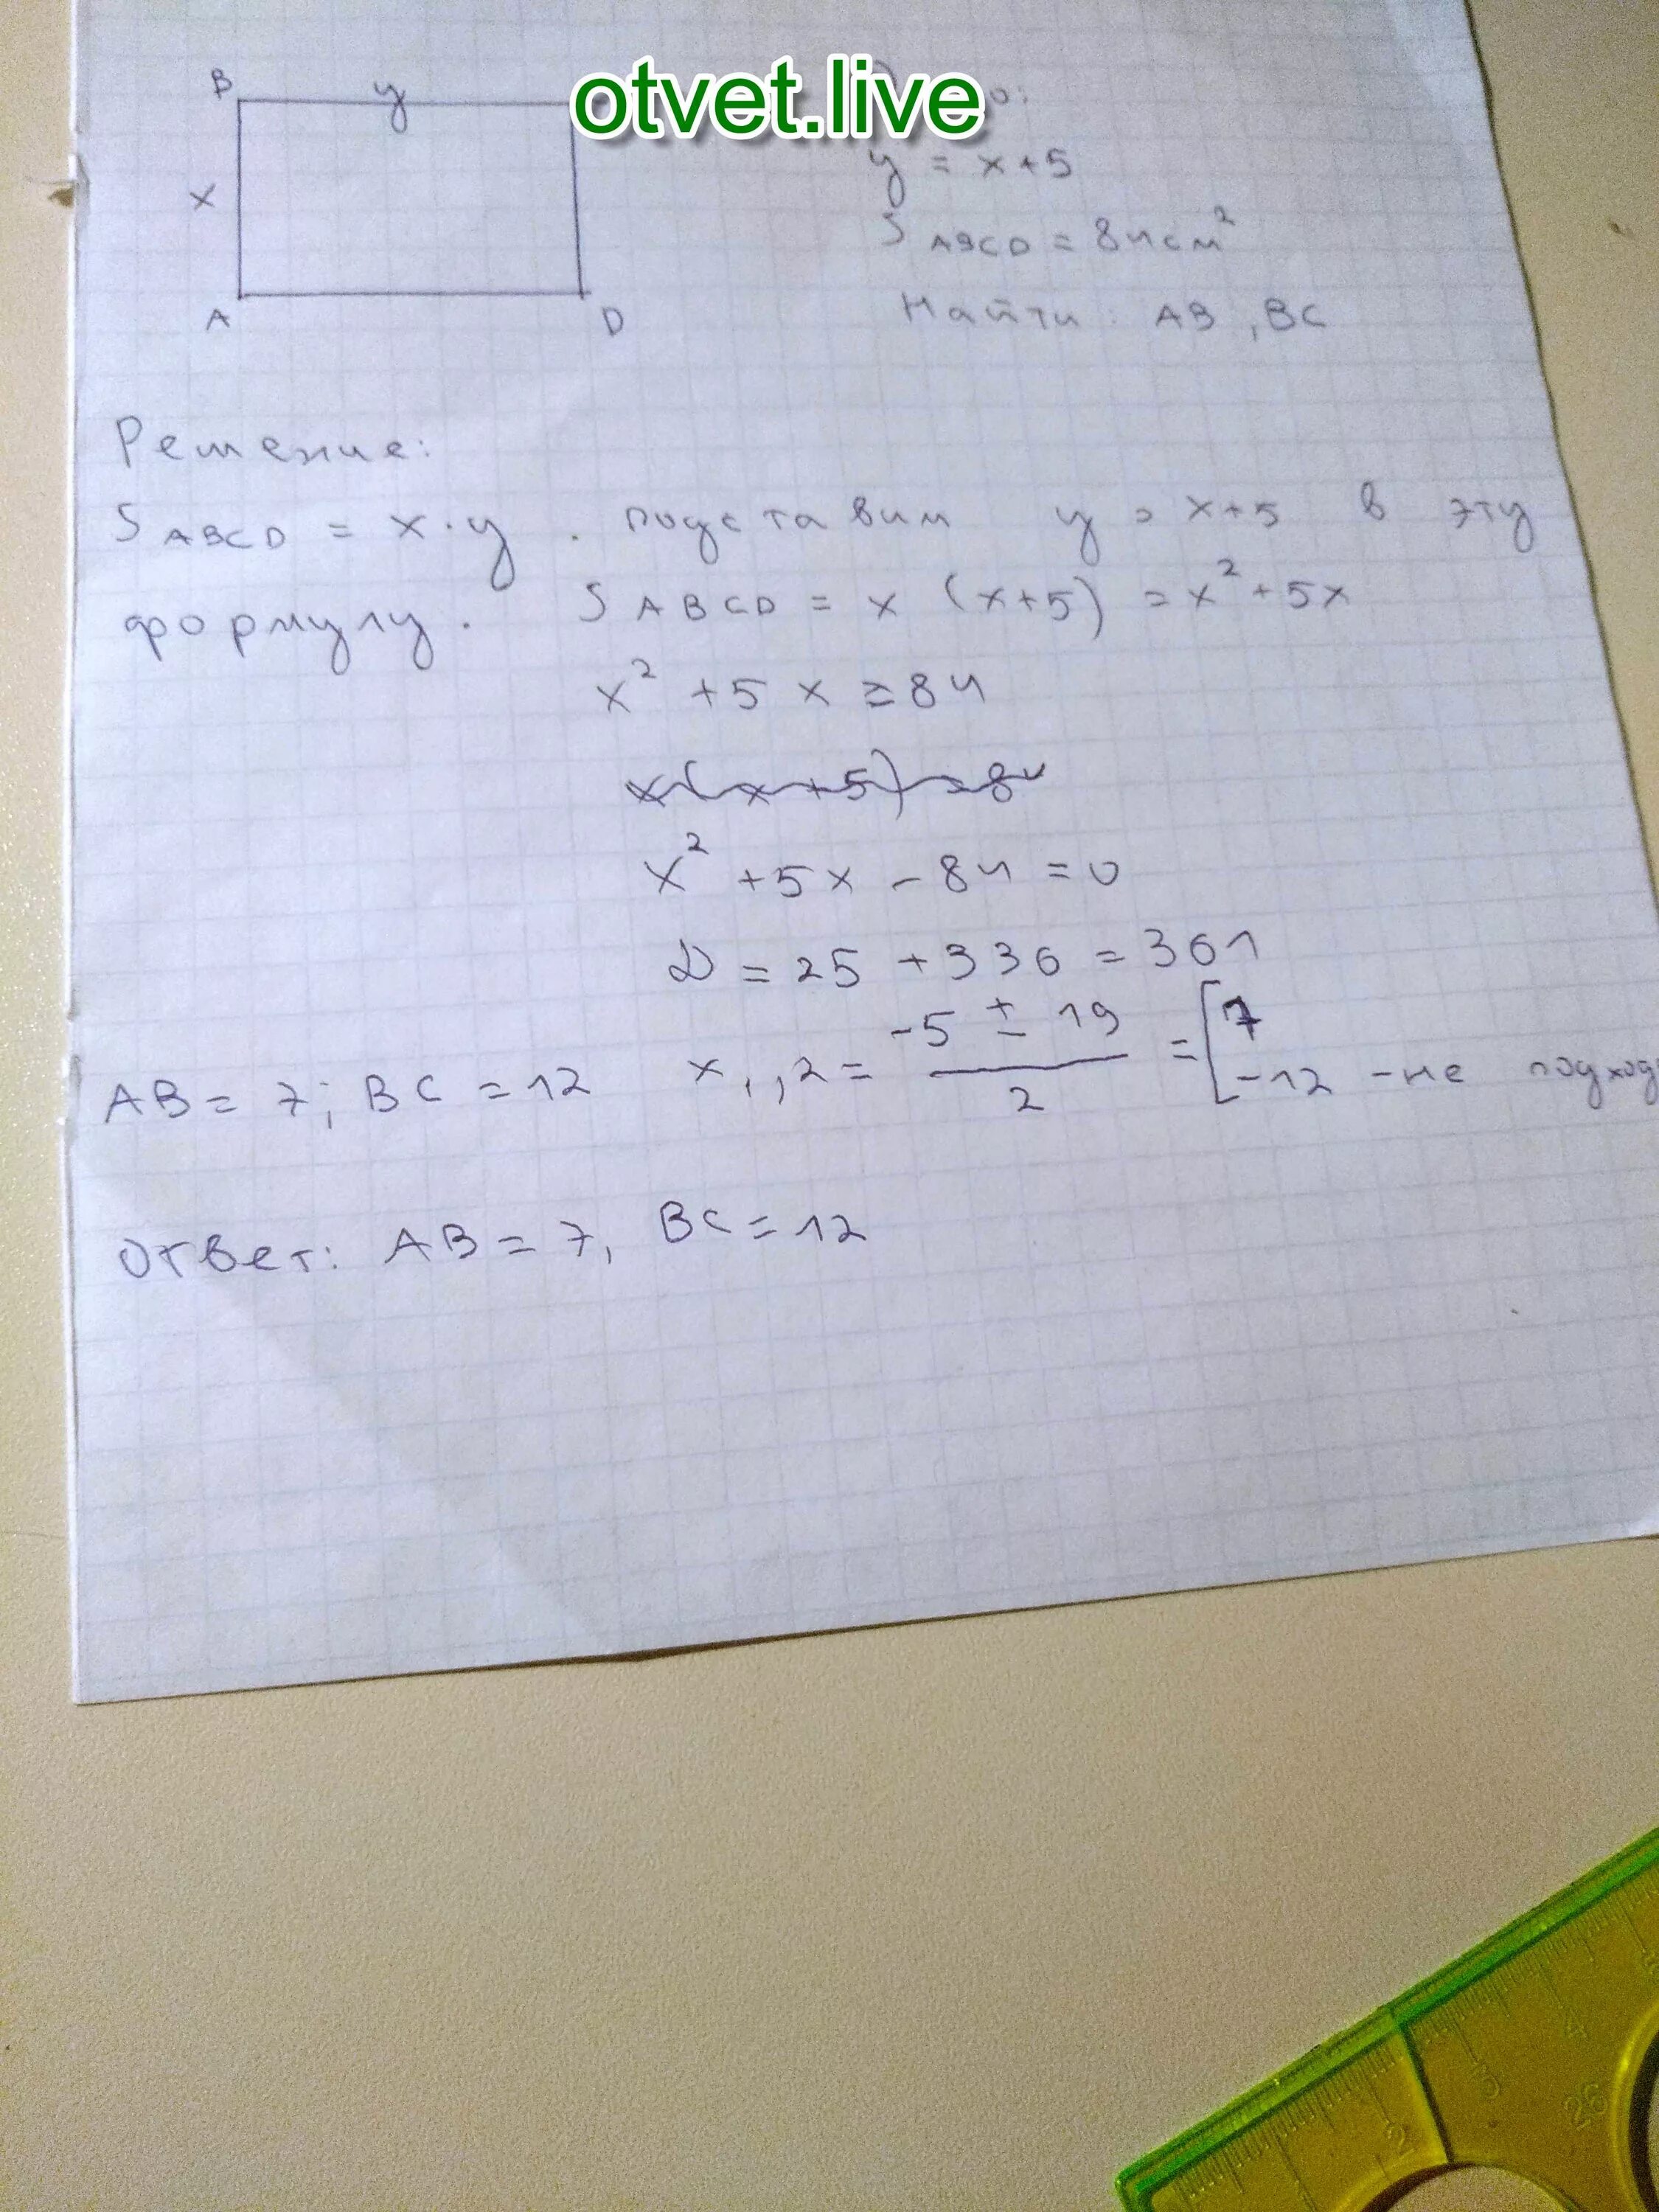 otvet.live
B y
x
A D
y = x+5
S ABCD = 84см²
Найти: AB, BC
Решение:
S ABCD = x·y . подставим y = x+5 в эту
формулу. S ABCD = x (x+5) = x² + 5x
x² + 5x = 84
x(x+5) = 84
x² + 5x - 84 = 0
D = 25 + 336 = 361
x₁,,₂ = (-5 ± 19)/2 = [7
-12 - не подход
AB = 7; BC = 12
Ответ: AB = 7, BC = 12
4
3
2
26